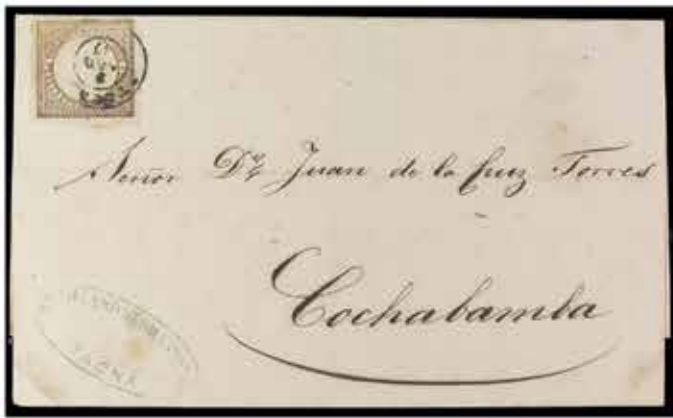 Señor Dn Juan de la Cruz Torres
Cochabamba
TACNA